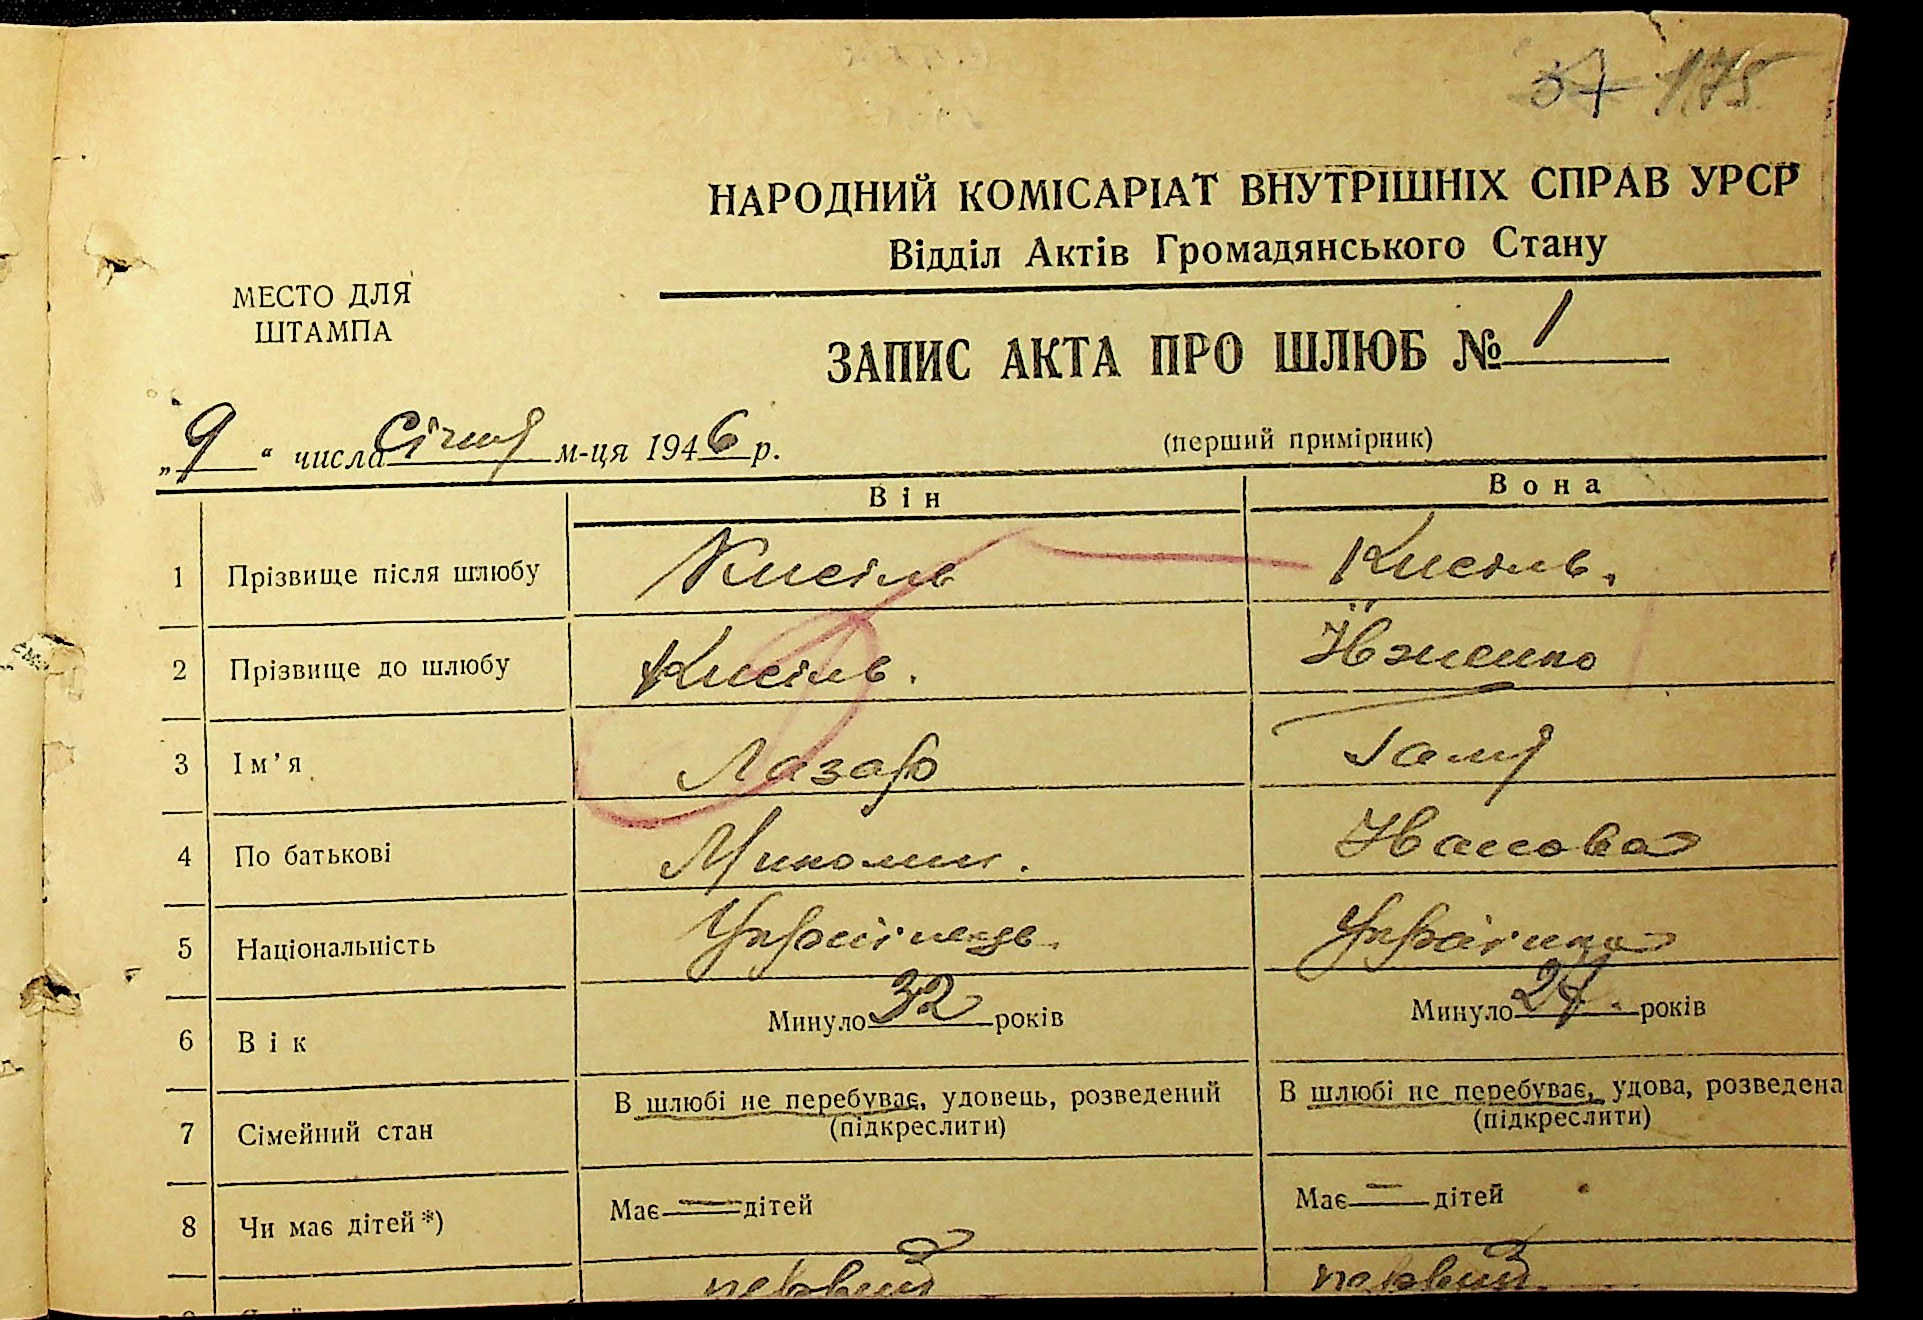 175
НАРОДНИЙ КОМІСАРІАТ ВНУТРІШНІХ СПРАВ УРСР
Відділ Актів Громадянського Стану
МЕСТО ДЛЯ
ШТАМПА
ЗАПИС АКТА ПРО ШЛЮБ № 1
„9“ числа січня м-ця 1946 р.
(перший примірник)
Він Вона
1 Прізвище після шлюбу Кисіль Кисіль.
2 Прізвище до шлюбу Кисіль.
3 Ім'я Лазар Галя
4 По батькові Миколин. Іванова
5 Національність Українець. Українка
6 Вік Минуло 32 років Минуло 24 років
7 Сімейний стан В шлюбі не перебуває, удовець, розведений В шлюбі не перебуває, удова, розведена
(підкреслити) (підкреслити)
8 Чи має дітей*) Має — дітей Має — дітей
первий первий